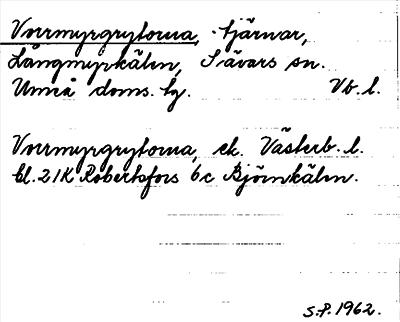 Vorrmyrgrytorna, tjärnar,
Långmyrkälen, Sävars sn.
Umeå doms. hg. Vb. l.
Vorrmyrgrytorna, ek. Västerb. l.
bl. 21K Robertsfors 6c Björnkälen.
S.P. 1962.